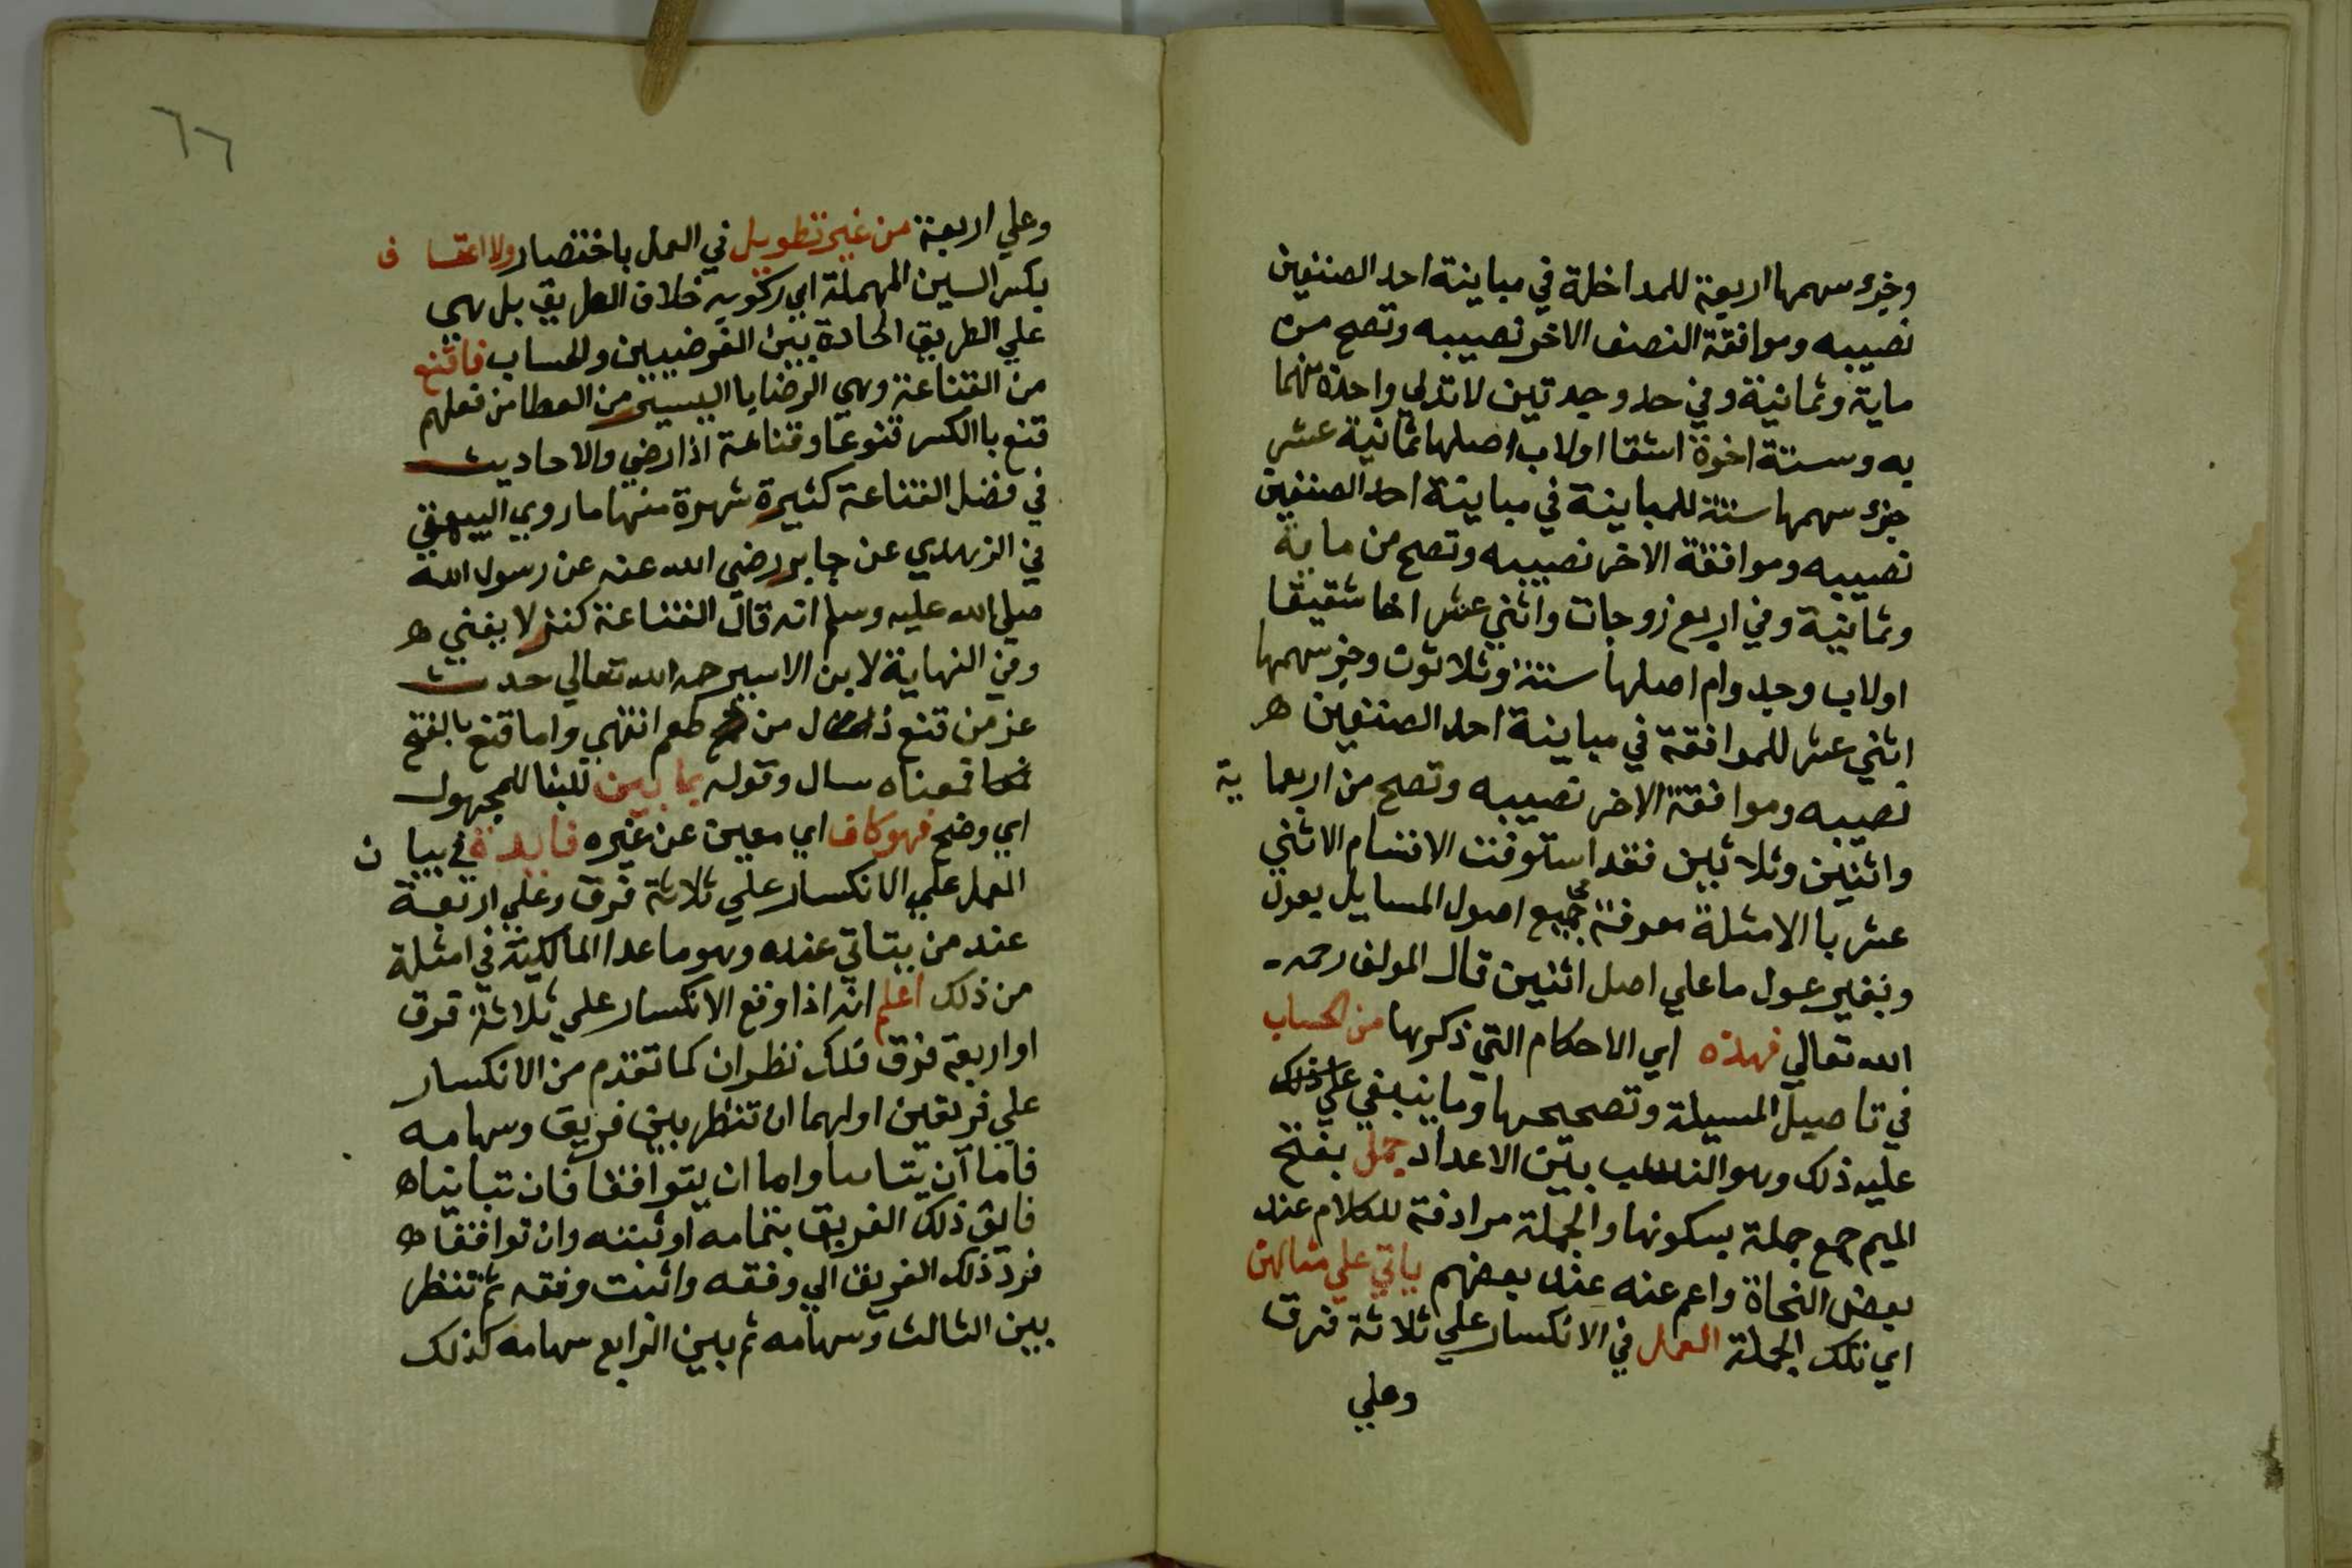 وجزء سهمها اربعة للمداخلة في مباينة احد الصنفين
نصيبه وموافقة النصف الاخر نصيبه وتصح من
ماية وثمانية وفي حد وجدتين لا تدلي واحدة منهما
به وستة اخوة اشقا اولاب اصلها ثمانية عشر
جزء سهمها ستة للمباينة في مباينة احد الصنفين
نصيبه وموافقة الاخر نصيبه وتصح من ماية
وثمانية وفي اربع زوجات واثني عشر اخا شقيقا
اولاب وجد وام اصلها ستة وثلاثون وجزء سهمها
اثني عشر للموافقة في مباينة احد الصنفين ه
نصيبه وموافقة الاخر نصيبه وتصح من اربعماية
واثنين وثلاثين فقد استوفت الاقسام الاثني
عشر با الامثلة معرفة في جميع اصول المسايل بعول
وبغير عول ما علي اصل اثنين قال المولف رحمه
الله تعالي فهذه اي الاحكام التي ذكرها من الحساب
في تاصيل المسيلة وتصحيحها وما ينبغي علي ذلك
عليه ذلك وهو النسب بين الاعداد جمل بفتح
الميم جمع جملة بسكونها والجملة مرادفة للكلام عند
بعض النحاة واعم عنه عند بعضهم ياتي علي مثالهن
اي تلك الجملة العمل في الانكسار علي ثلاثة فرق
وعلي
٦٦
وعلي اربعة من غير تطويل في العمل باختصار ولا اعتساف
بكسر السين المهملة اي ركوبه خلاف الطريق بل هي
علي الطريق الجادة بين الفرضيين والحساب فاقنع
من القناعة وهي الرضايا اليسير من العطا من فعلهم
قنع باالكسر قنوعا وقناعة اذا رضي والاحاديث
في فضل القناعة كثيرة شهرة منها ما روي البيهقي
في الزهدي عن جابر رضي الله عنه عن رسول الله
صلي الله عليه وسلم انه قال القناعة كنز لا يفني ه
وفي النهاية لابن الاسير رحمه الله تعالي حديث
عز من قنع ذل من طمع انتهي واما قنع بالفتح
فمعناه سال وقوله بما بين للبنا للمجهول
اي وضح فهو كاف اي معين عن غيره فايدة في بيان
العمل علي الانكسار علي ثلاثة فرق وعلي اربعة
عند من يتاتي عنده وهو ما عدا المالكية في امثلة
من ذلك اعلم انه اذا وقع الانكسار علي ثلاثة فرق
او اربعة فرق فلك نظران كما تقدم من الانكسار
علي فريقين اولهما ان تنظر بين فريق وسهامه
فاما ان يتباينا واما ان يتوافقا فان تباينا ه
فابق ذلك الفريق بتمامه اوثبته وان توافقا ه
فرد ذلك الفريق الي وفقه واثبت وفقه ثم تنظر
بين الثالث وسهامه ثم بين الرابع سهامه كذلك